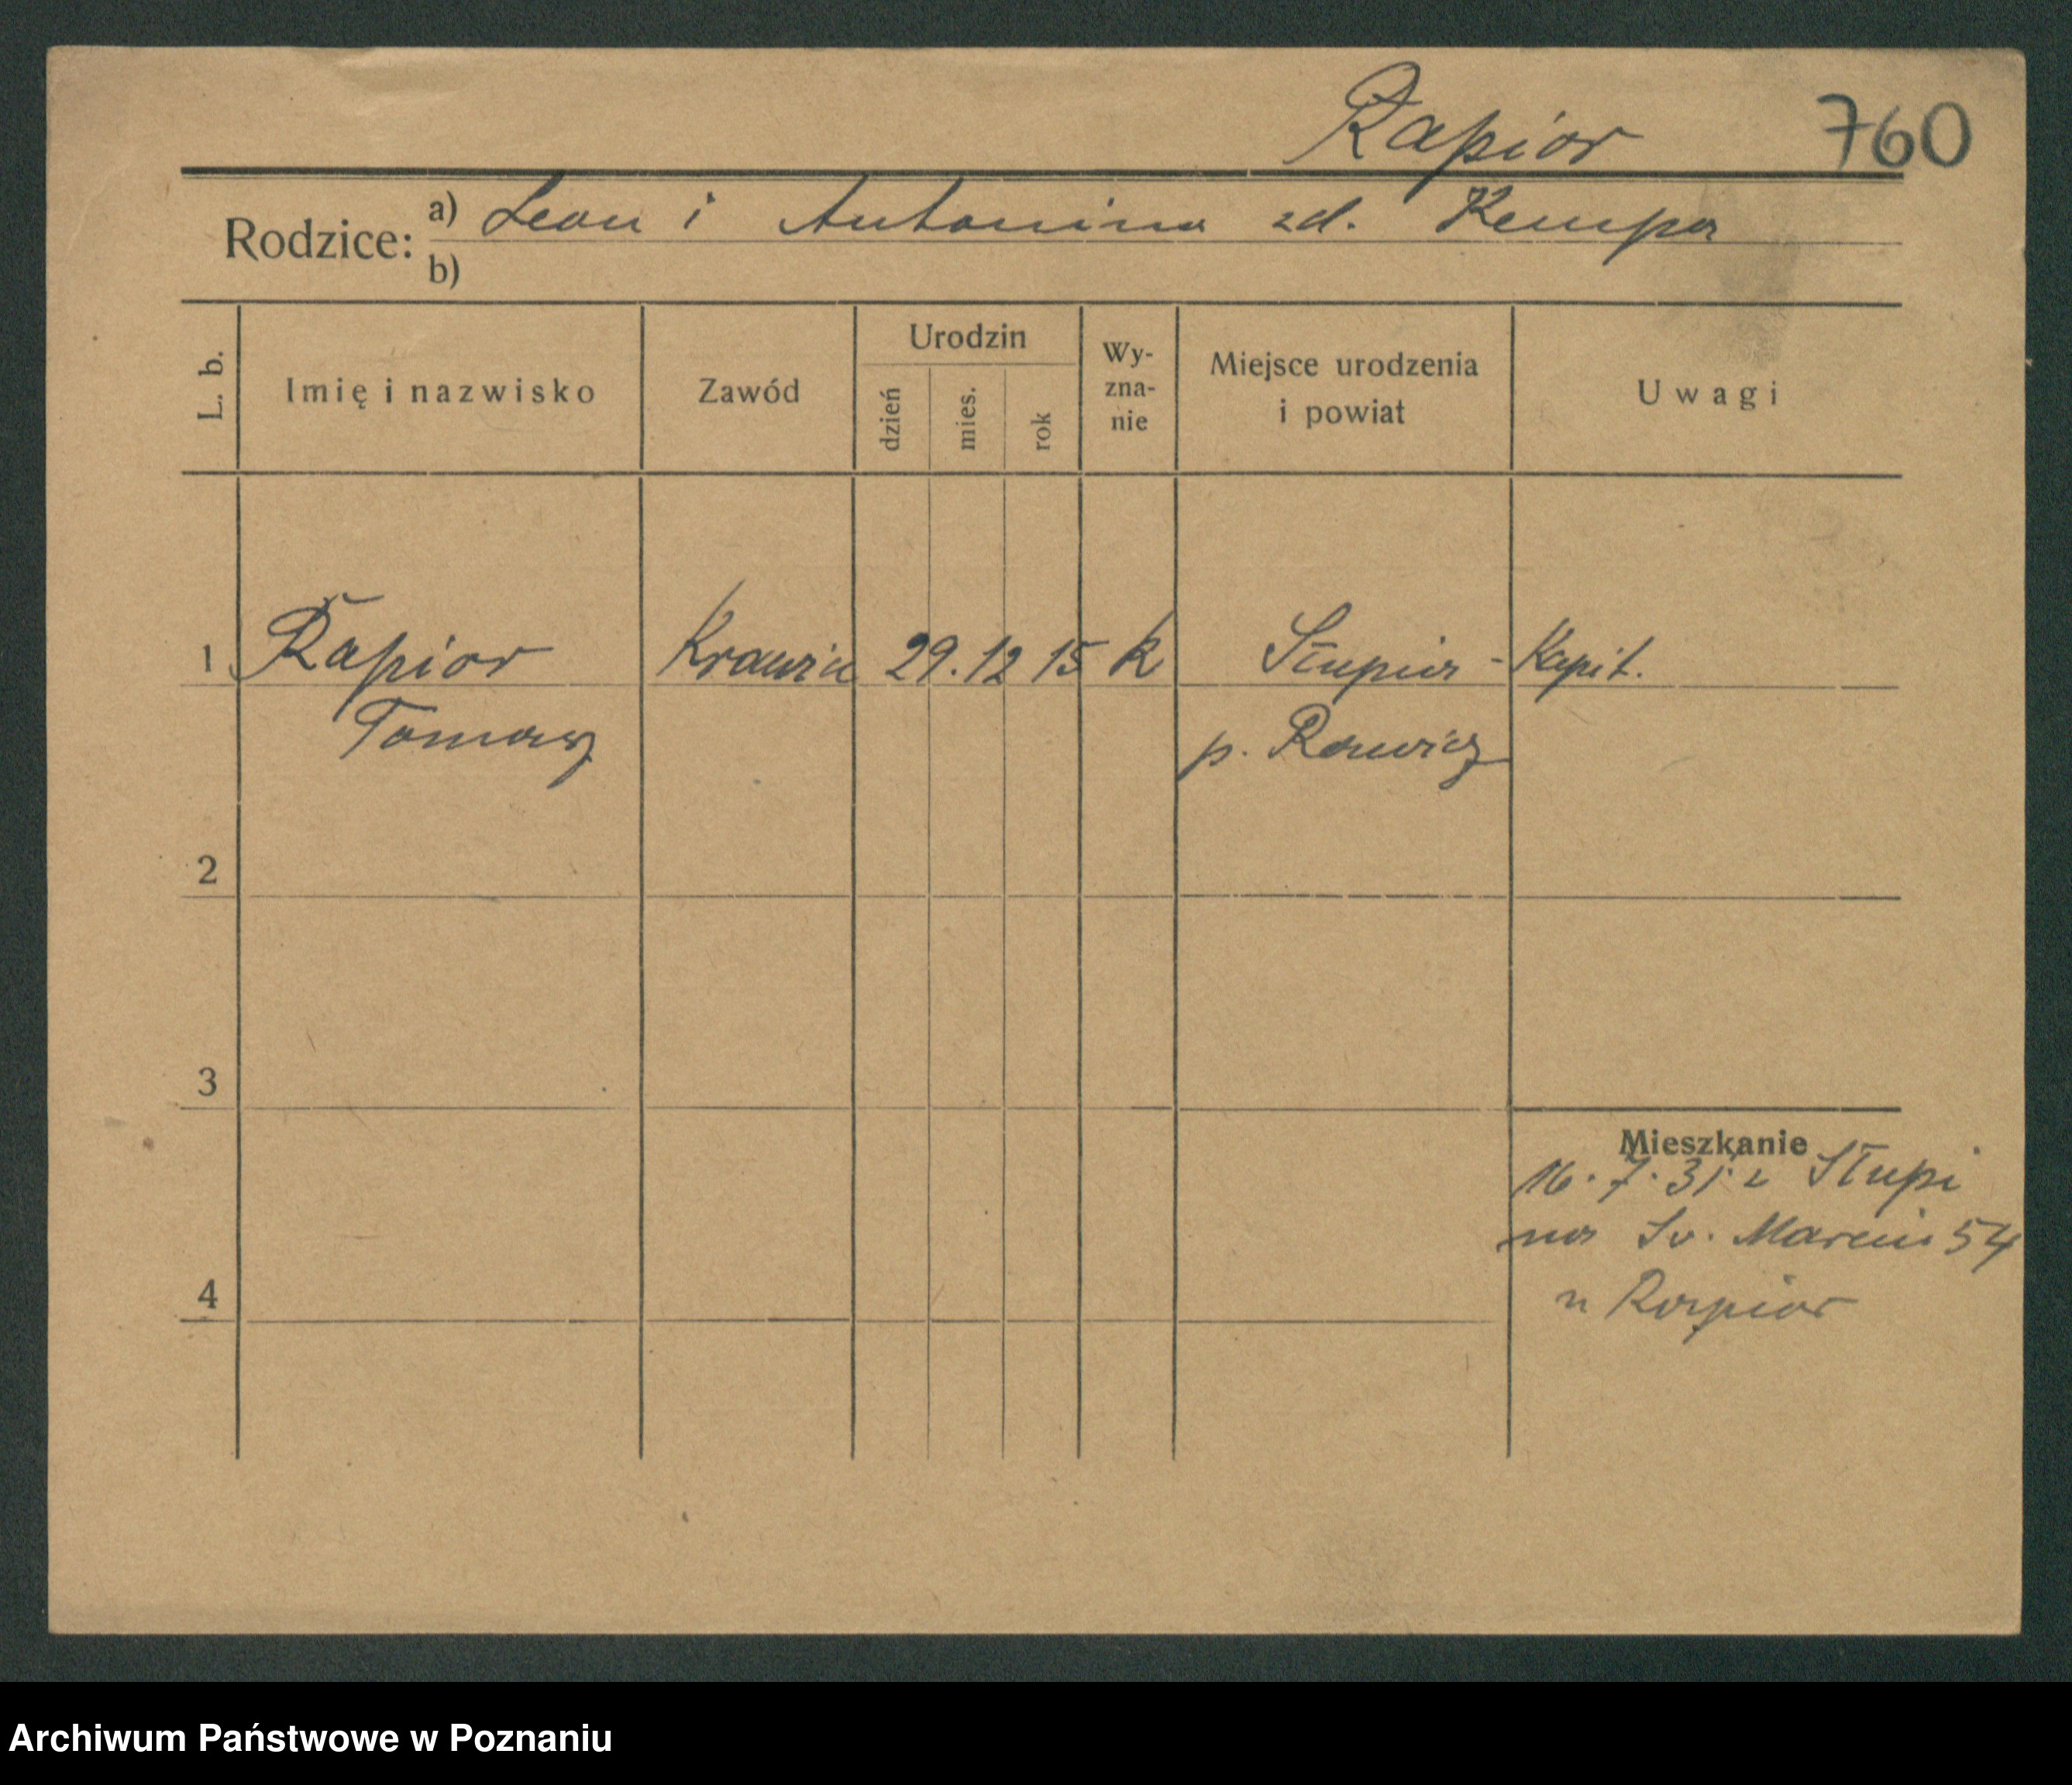 Rapior 760
Rodzice: a) Leon i Antonina zd. Kempa
b)
L. b. Imię i nazwisko Zawód Urodzin dzień mies. rok Wy-
zna-
nie Miejsce urodzenia
i powiat Uwagi
1 Rapior Krawiec 29. 12 15 k Słupia - Kapit.
Tomasz p. Rawicz
2
3
Mieszkanie
16. 7. 31. z Słupi
na Sw. Marcin 54
4 u Rapior
Archiwum Państwowe w Poznaniu